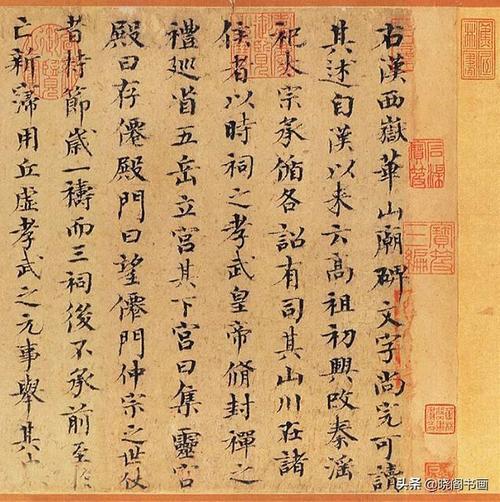 右漢西嶽華山廟碑文字尚完可讀
其述自漢以来云高祖初興改秦滛
祀太宗承循各詔有司其山川在諸
侯者以時祠之孝武皇帝脩封禪之
禮廵省五岳立宫其下宫曰集靈宫
殿曰存僊殿門曰望僊門仲宗之世使
者持節歲一禱而三祠後不承前至
亡新寖用丘虛孝武之元事舉其
石渠寶笈
寶笈三編
头条 @晓阁书画